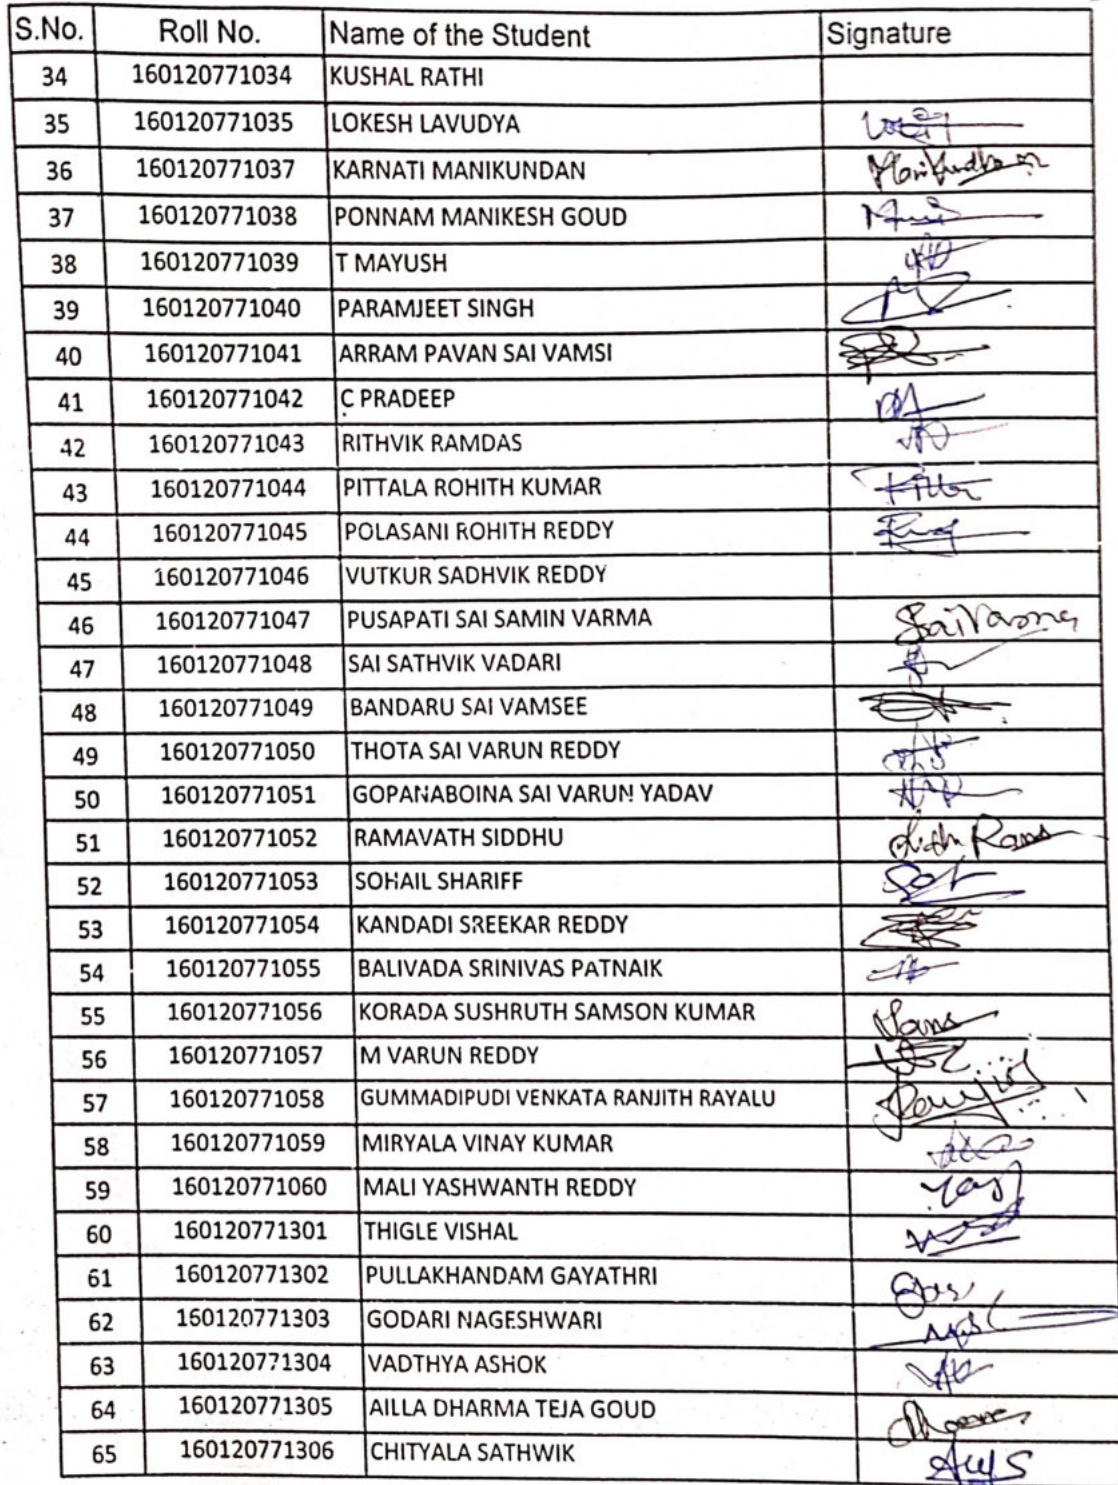 S.No. Roll No. Name of the Student Signature
34 160120771034 KUSHAL RATHI
35 160120771035 LOKESH LAVUDYA
36 160120771037 KARNATI MANIKUNDAN Manikundhan
37 160120771038 PONNAM MANIKESH GOUD
38 160120771039 T MAYUSH
39 160120771040 PARAMJEET SINGH
40 160120771041 ARRAM PAVAN SAI VAMSI
41 160120771042 C PRADEEP
42 160120771043 RITHVIK RAMDAS
43 160120771044 PITTALA ROHITH KUMAR
44 160120771045 POLASANI ROHITH REDDY
45 160120771046 VUTKUR SADHVIK REDDY
46 160120771047 PUSAPATI SAI SAMIN VARMA SaiVarma
47 160120771048 SAI SATHVIK VADARI
48 160120771049 BANDARU SAI VAMSEE
49 160120771050 THOTA SAI VARUN REDDY
50 160120771051 GOPANABOINA SAI VARUN YADAV
51 160120771052 RAMAVATH SIDDHU
52 160120771053 SOHAIL SHARIFF
53 160120771054 KANDADI SREEKAR REDDY
54 160120771055 BALIVADA SRINIVAS PATNAIK
55 160120771056 KORADA SUSHRUTH SAMSON KUMAR
56 160120771057 M VARUN REDDY
57 160120771058 GUMMADIPUDI VENKATA RANJITH RAYALU
58 160120771059 MIRYALA VINAY KUMAR
59 160120771060 MALI YASHWANTH REDDY
60 160120771301 THIGLE VISHAL
61 160120771302 PULLAKHANDAM GAYATHRI
62 160120771303 GODARI NAGESHWARI
63 160120771304 VADTHYA ASHOK
64 160120771305 AILLA DHARMA TEJA GOUD
65 160120771306 CHITYALA SATHWIK